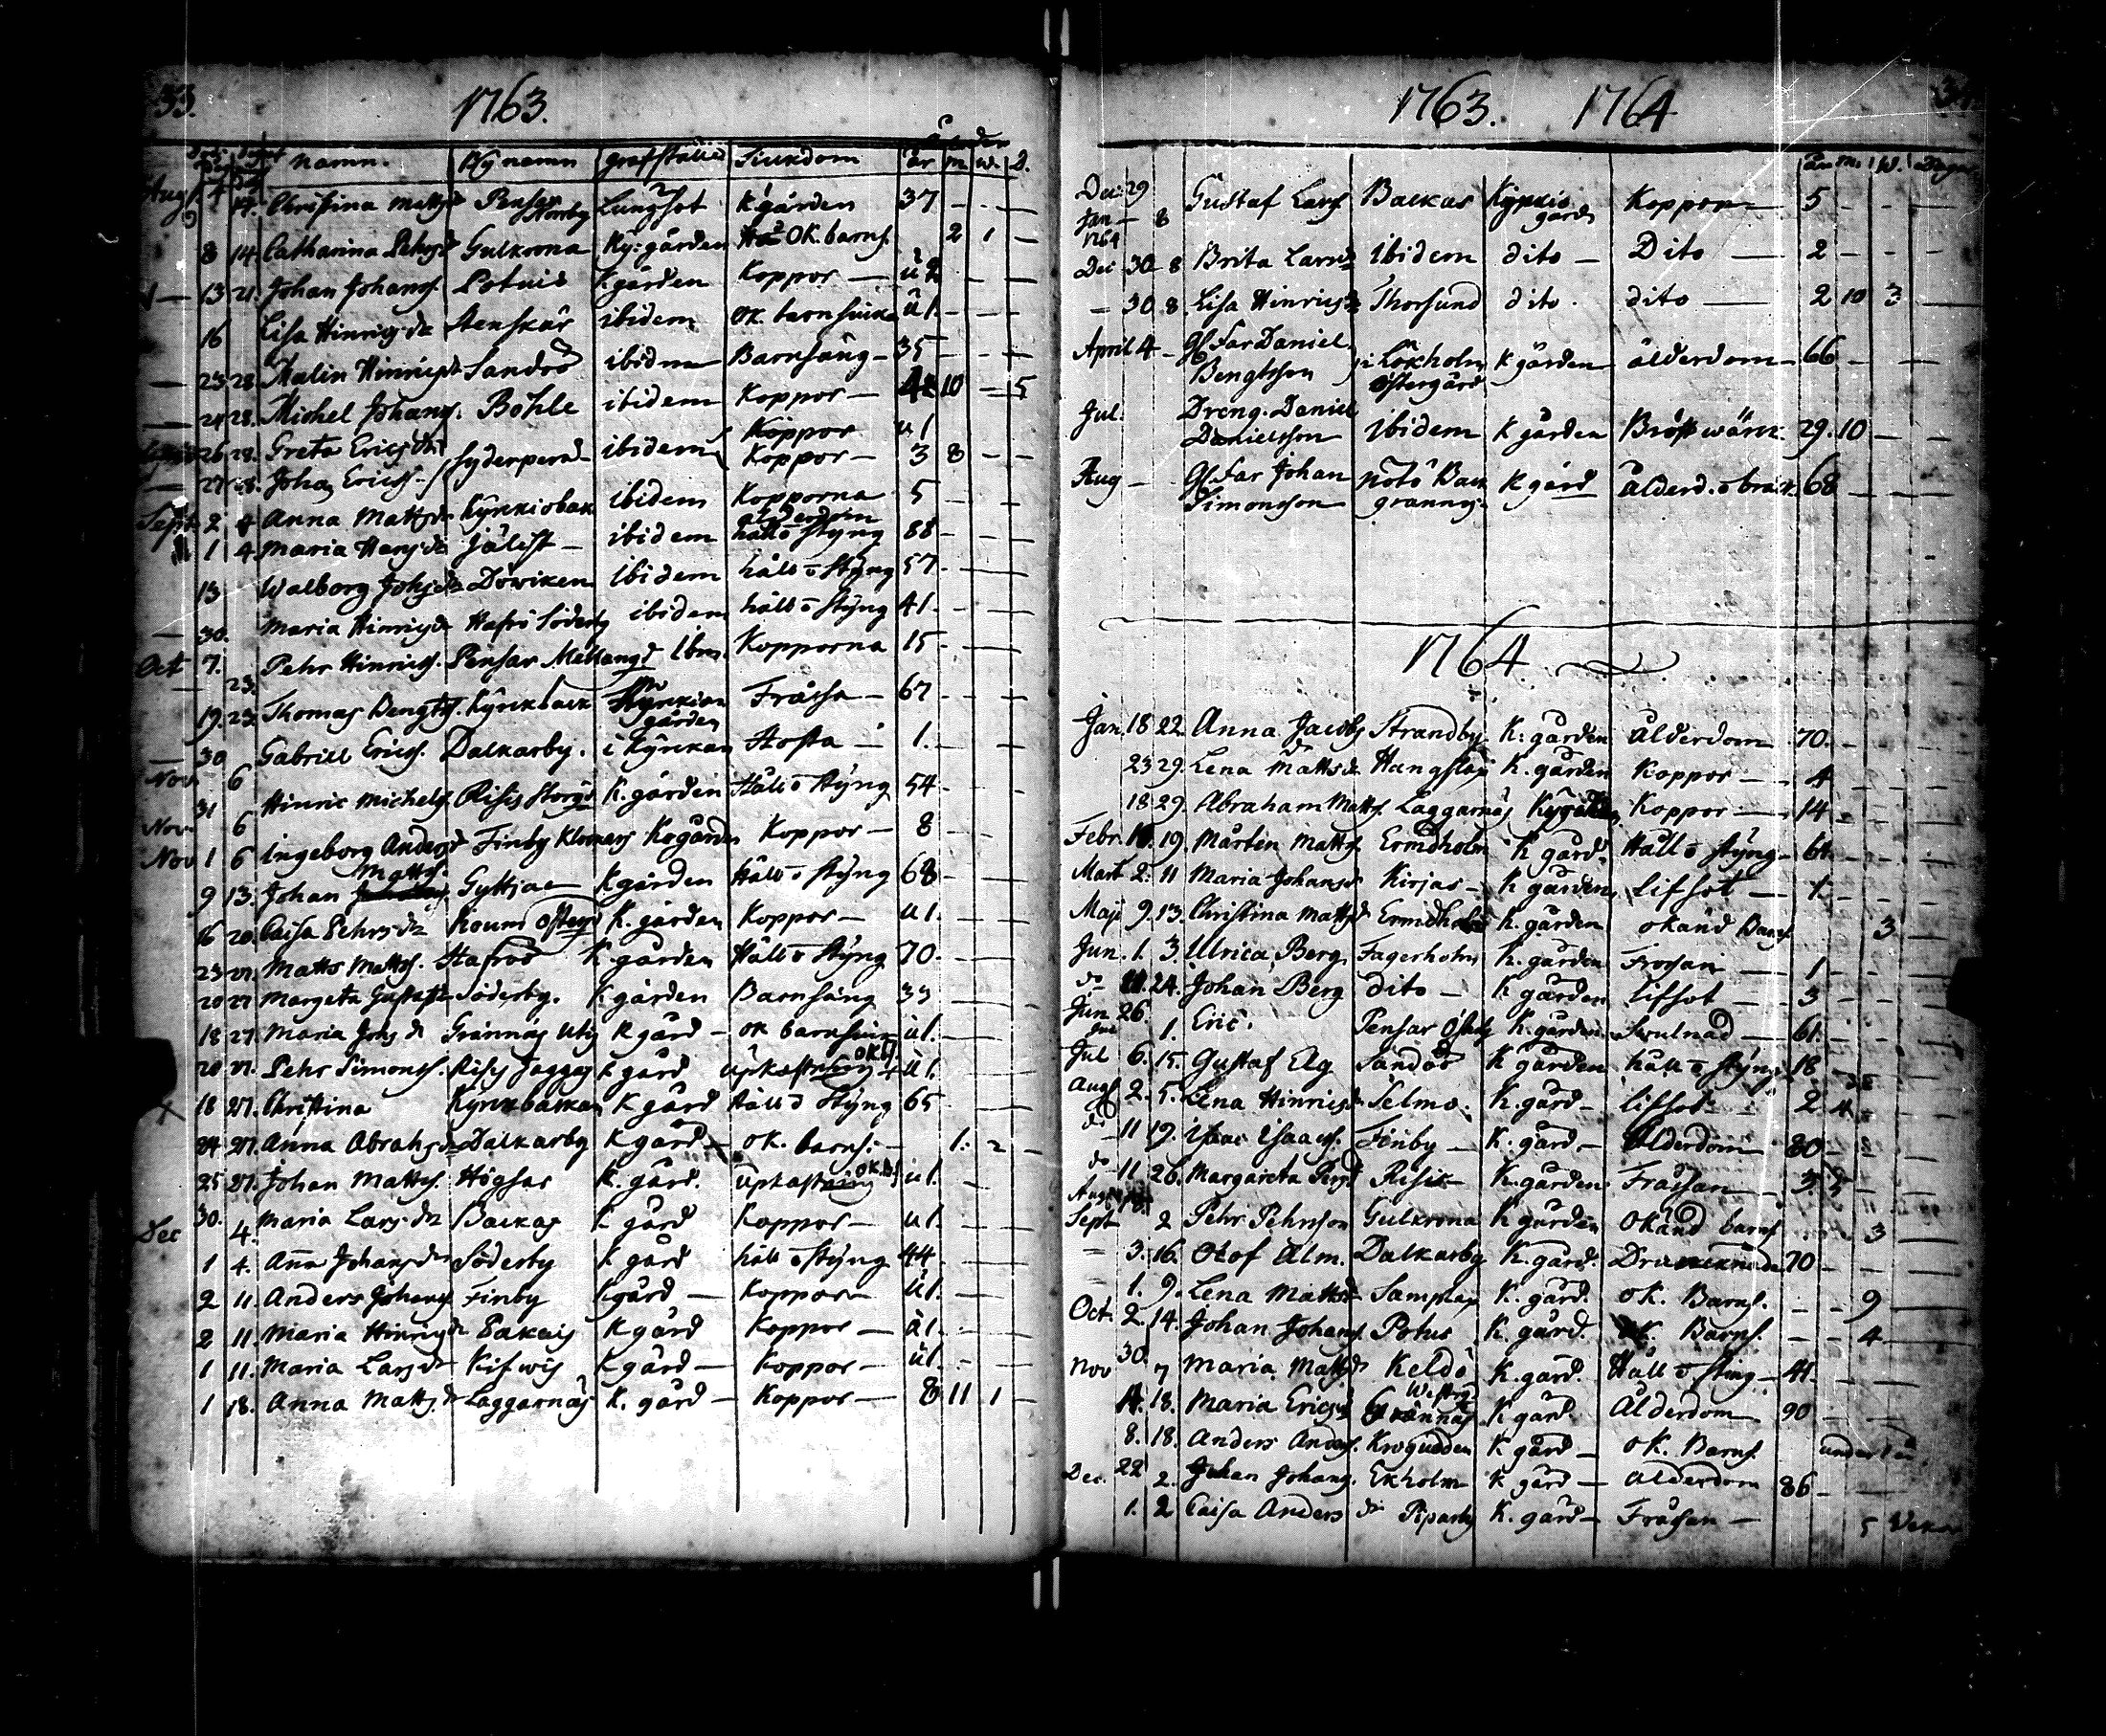 33.
1763.
namn. Bÿ namn grafställe Siukdom år m. w. D.
Aug. 4 14. Christina Matts dr Pensar Norrby Lungsot K gården 37 - - -
8 14 Catharina Pehrs dr Gulkrona Ky: gården OK. barns. 2 1 -
13 21. Johan Johans. Potuis K gården Koppor - - -
16 Lisa Hinrics dr Stenskär ibidem OK. barnsiuka u 1. - - -
23 28. Malin Hinrics dr Sandöö ibidem Barnsäng - 35 - - -
24 28. Michel Johans. Böhle ibidem Koppor - 10 - 5
26 28. Greta Erics dr ibidem Koppor u 1
27 28. Johan Erics. Koppor - 3 8 - -
Sept. 2 4 Anna Matts dr Kyrkiobak ibidem Kopporna 5 - -
1 4 Maria Hans dr Jälist - ibidem ålderdom håll o styng 88 - - -
13 Walborg Johs dr Dowiken ibidem håll o styng 57 - - -
30. Maria Hinrics dr Hafrö Söderby ibidem håll o styng 41. - - -
Oct 7. Pehr Hinrics. Pensar Mellangd Ibm. Kopporna 15 - - -
23.
19. 23. Thomas Bengts. Kyrckback Kyrkian gården Fråssa - 67 - - -
30 Gabriel Erics. Dalkarby. i Kyrckan Hosta - 1. - -
Nov. 6
31 Hinric Michels. Risis Storgd K. gården Håll o styng 54 - - -
Nov. 6
Nov 1 6 Ingeborg Anders d Finby Klockars Kogården Koppor - 8 - - -
9 13. Johan Matts. Gyttja - K gården Håll o styng 68 - - -
16 20. Caisa Pehrs dr Kouns Ostergd K. gården Koppor - u 1. - - -
23 27. Matts Matts. Hafröö K gården Håll o styng 70 - - -
20 27 Margeta Gustafs dr Söderby. K gården Barnsäng 33 - - -
18 27. Maria Johs dr Grännäs Utig K gård - OK barnsiuka u 1. - - -
20 27. Pehr Simons. Risis Jagges K gård upkastning okbs. u 1. - - -
18 27. Christina Kyrckbackan K gård Håll o styng 65 - - -
24 27. Anna Abrahs dr Dalkarby K gård - OK. barns. - 1. 2 -
25 27. Johan Matts. Högsar K. gård. upkastning okbs u 1. - -
30. 4. Maria Lars dr Backas K gård Koppor - u 1. - -
Dec
1 4. Ana Johans dr Söderby K gård håll o styng 44. - - -
2 11. Anders Johans Finby K gård - Koppor - u 1. - - -
2 11. Maria Hinrics dr Pakais K gård Koppor - u 1. - - -
1 11. Maria Lars dr Kifwis K gård - Koppor - u 1. - - -
1 18. Anna Matts dr Laggarnäs K. gård - Koppor - 8 11 1 -
1763. 1764
år m. W. Dagar
Dec 29 Gustaf Lars Backas Kyrckio gård Koppor - 5 - - -
Jan 1764 8
Dec 30 8 Brita Larsdr Ibidem dito - Dito - 2 - - -
- 30 8. Lisa Hinrics dr Thorsund dito. dito - 2 10 3 -
April 4 - Gl Far Daniel Bengtsson i Lökholm östergård K gården ålderdom - 66 - - -
Jul. Dreng. Daniel Danielsson Ibidem K gården Bröstwärk. 29. 10 - -
Aug - Gl Far Johan Simonsson Nötö Back grannas K gård ålderd. o bråk. 68 - - -
1764.
Jan. 18 22. Anna Jacobs d Strandby K: gården ålderdom 70. - - -
23 29. Lena Matts dr Hangslax K. gården Koppor - 4 - - -
18 29. Abraham Matts. Laggarnäs Koppor - 14 - - -
Febr. 19. Mårten Matts. Ermdholm K gård. Håll o styng - 61. - - -
Mart 2. 11 Maria Johans d Kirjas - K gården Lifsot - 1. - - -
Maji 9. 13. Christina Matts dr Ermdholm K. gården okänd Barns. 3 -
Jun. 1. 3. Ulrica Berg Fagerholm K. gården Frossan - 1 - - -
do 11. 24. Johan Berg dito - K gården lifsot - 3 - - -
Jun 26. 1. Eric. Pensar Österg K. gården Swulnad - 61. - - -
Jul 6. 15. Gustaf Elg Sandöö K gården håll o styng 18 - -
Aug 2. 5. Lena Hinrics dr Selmo. K. gård - lifsot 2 4 -
do 11 19. Isaac Isaacs. Finby - K. gård - Ålderdom 80 - - -
do 11. 26. Margareta Pers d Risis - K. gården Fråssan - 3. - -
Sept 2 Pehr Pehrsson Gulkrona K gården Okänd barns 3 -
- 3. 16. Olof Alm. Dalkarby K. gård. 70 - - -
- 1. 9. Lena Matts dr Samplax K. gård. OK. Barns. - - 9 -
Oct. 2. 14. Johan Johans. Potus K. gård. OK. Barns. - - 4 -
30.
Nov 7 Maria Matts dr Keldö K. gård. Håll o sting - 41. - - -
11. 18. Maria Erics d Westrg Grännäs K gård. Ålderdom 90 - - -
8. 18. Anders Anders. Krogudden K gård - OK. Barns. under
Dec. 22 2. Johan Johans. Ekholm K gård - ålderdom 86 - - -
1. 2 Caisa Anders dr Piparby K. gård - Fråssan - 5 Veckor